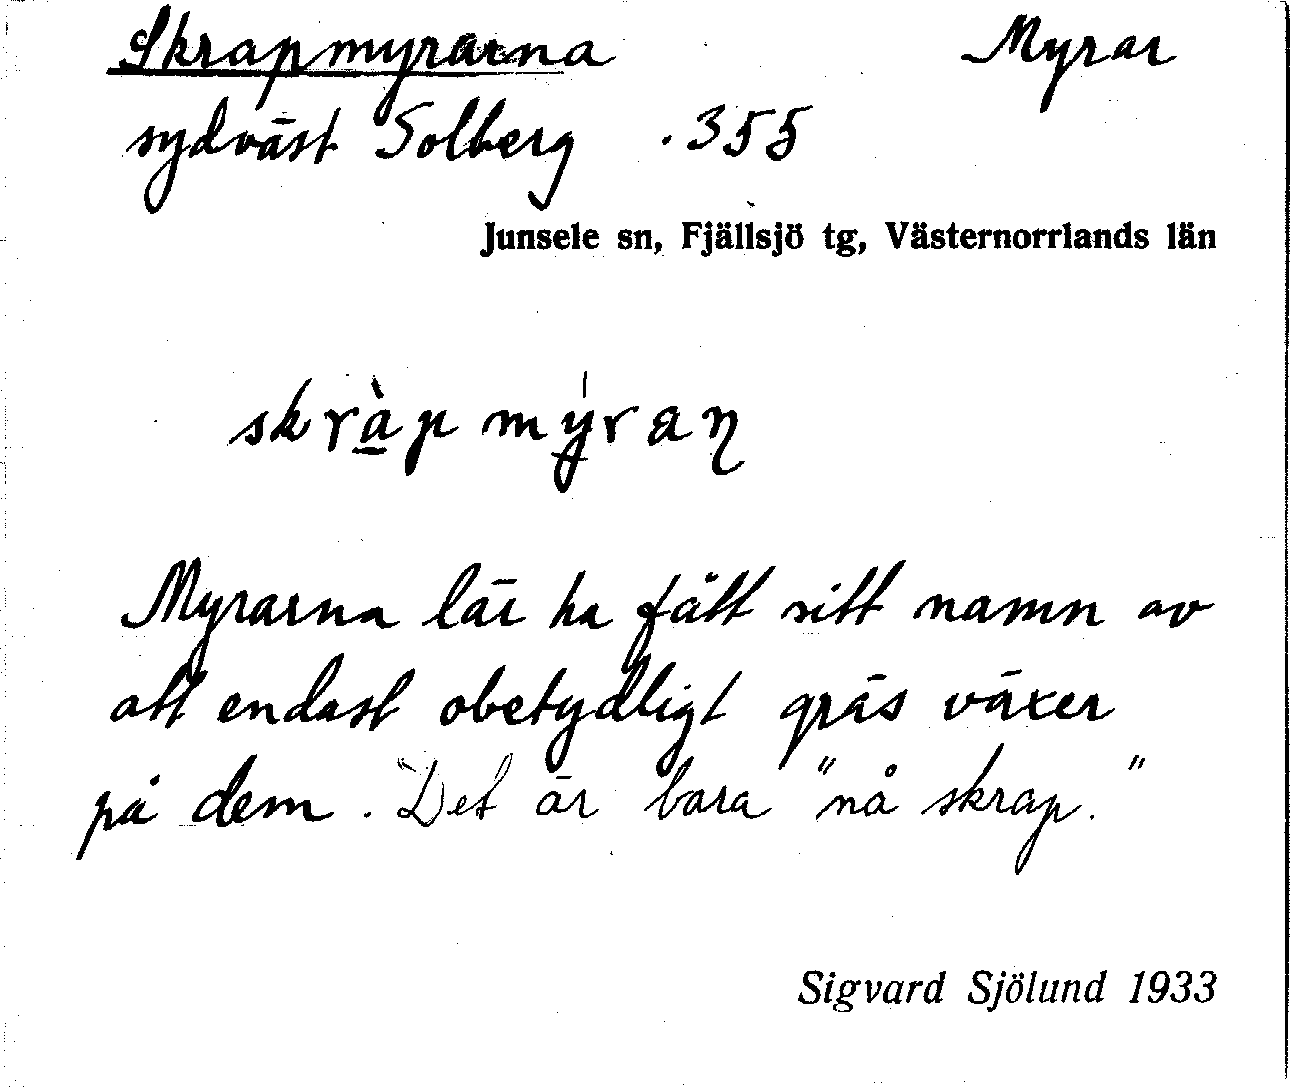 Skrapmyrarna Myrar
sydväst Solberg . 355
Junsele sn, Fjällsjö tg, Västernorrlands län
skràp mýraɳ
Myrarna lär ha fått sitt namn av
att endast obetydligt gräs växer
på dem. Det är bara "nå skrap."
Sigvard Sjölund 1933